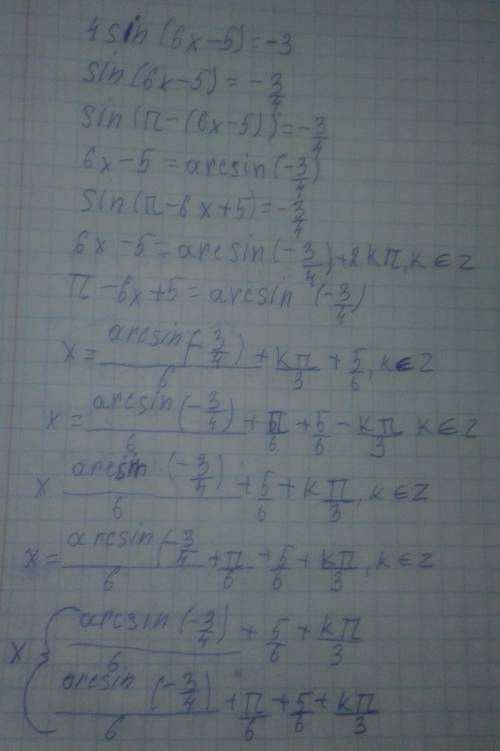 4 sin (6x-5) = -3
sin (6x-5) = -3/4
sin (π-(6x-5)) = -3/4
6x-5 = arcsin(-3/4)
sin (π-6x+5) = -3/4
6x-5 = arcsin(-3/4)+2kπ, k∈z
π-6x+5 = arcsin (-3/4)
x = arcsin(-3/4)/6 + kπ/3 + 5/6, k∈z
x = arcsin(-3/4)/6 + π/6 + 5/6 - kπ/3 k∈z
x arcsin (-3/4)/6 + 5/6 + k π/3, k∈z
x = arcsin(-3/4/6 + π/6 + 5/6 + kπ/3, k∈z
x { arcsin(-3/4)/6 + 5/6 + kπ/3
arcsin (-3/4)/6 + π/6 + 5/6 + kπ/3